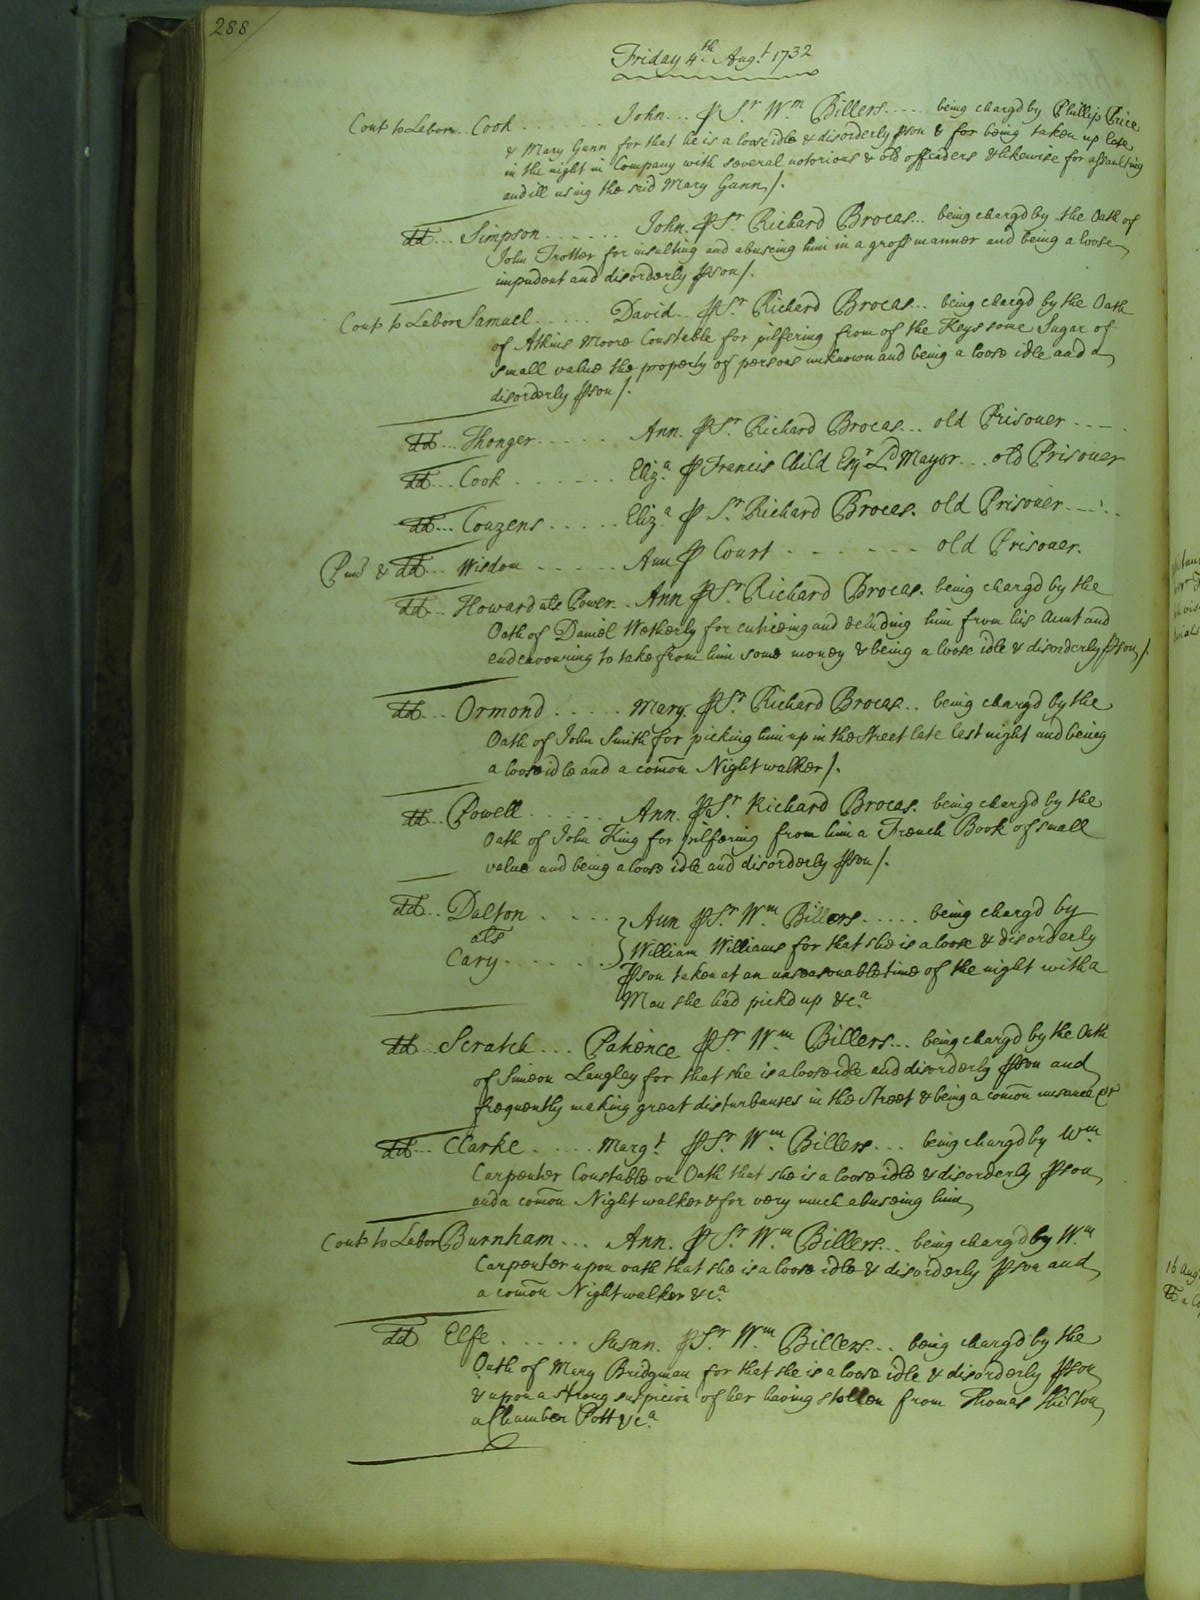 288
Friday 4th. Augt. 1732
Cont to Labor... Cook ........ John... ⅌ Sr. Wm. Billers .... being charg'd by Phillip Price
& Mary Gunn for that he is a loose idle & disorderly ⅌son & for being taken up late
in the night in Company with several notorious & old offenders & likewise for assaulting
and ill using the said Mary Gunn /.
dd... Simpson ...... John. ⅌ Sr. Richard Brocas... being charg'd by the Oath of
John Trotter for insulting and abuseing him in a gross manner and being a loose
impudent and disorderly ⅌son /.
Cont to Labor Samuel ..... David.. ⅌ Sr. Richard Brocas... being charg'd by the Oath
of Atkins Moore Constable for pilfering from of the Keys some Sugar of
small value the property of persons unknown and being a loose idle and a
disorderly ⅌son /.
dd... Thonger ..... Ann. ⅌ Sr. Richard Brocas... old Prisoner ....
dd... Cook ...... Eliz.a ⅌ Francis Child Esqr. Ld. Mayor... old Prisoner
dd... Couzens ..... Eliz.a ⅌ Sr. Richard Brocas. old Prisoner ....
Pun'd & dd... Wisdom ..... Ann ⅌ Court ....... old Prisoner.
dd... Howard als Power.. Ann ⅌ Sr. Richard Brocas. being charg'd by the
Oath of Daniel Wetherly for enticeing and deluding him from his Aunt and
endeavouring to take from him some money & being a loose idle & disorderly ⅌son /.
dd... Ormond ..... Mary. ⅌ Sr. Richard Brocas.. being charg'd by the
Oath of John Smith for picking him up in the Street late last night and being
a loose idle and a comon Nightwalker /.
dd.. Powell ...... Ann. ⅌ Sr. Richard Brocas. being charg'd by the
Oath of John King for pilfering from him a French Book of small
value and being a loose idle and disorderly ⅌son /.
dd.. Dalton ..... Ann ⅌ Sr. Wm. Billers ..... being charg'd by
als
Cary ...... William Williams for that she is a loose & disorderly
⅌son taken at an unseasonable time of the night with a
Man she had pick'd up &c.a
dd... Scratch ... Patience ⅌ Sr. Wm. Billers... being charg'd by the Oath
of Simeon Langley for that she is a loose idle and disorderly ⅌son and
frequently making great disturbances in the Street & being a comon nusance &c
dd... Clarke ..... Margt. ⅌ Sr. Wm. Billers... being charg'd by Wm.
Carpenter Constable on Oath that she is a loose idle & disorderly ⅌son
and a comon Nightwalker & for very much abuseing him
Cont to Labor Burnham ... Ann. ⅌ Sr. Wm. Billers... being charg'd by Wm.
Carpenter upon oath that she is a loose idle & disorderly ⅌son and
a comon Nightwalker &c.a
dd Elfe ..... Susan. ⅌ Sr. Wm. Billers... being charg'd by the
Oath of Mary Bridgman for that she is a loose idle & disorderly ⅌son
& upon a strong suspicion of her having stollen from Thomas
a Chamber Pott &c.a
16 Aug